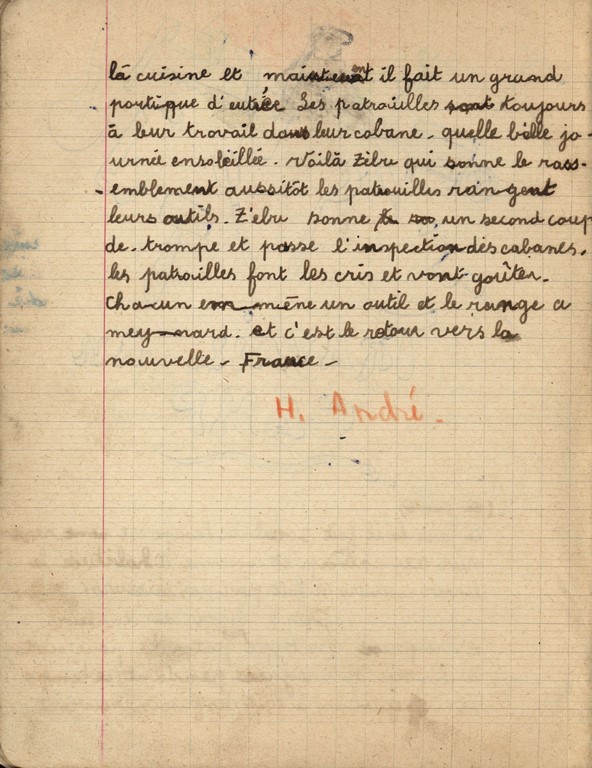 là cuisine et maintenant il fait un grand
portique d'entrée Les patrouilles sont toujours
à leur travail dans leur cabane. quelle bèlle jo-
urnée ensoleillée. Voilà Zèbu qui sonne le rass-
emblement aussitôt les patrouilles rangent
leurs outils. Z'ebu sonne un second coup
de trompe et passe l'inspection des cabanes.
les patrouilles font les cris et vont goûter.
chacun emmène un outil et le range a
mey-nard. et c'est le retour vers la
nouvelle - France -
H. André.